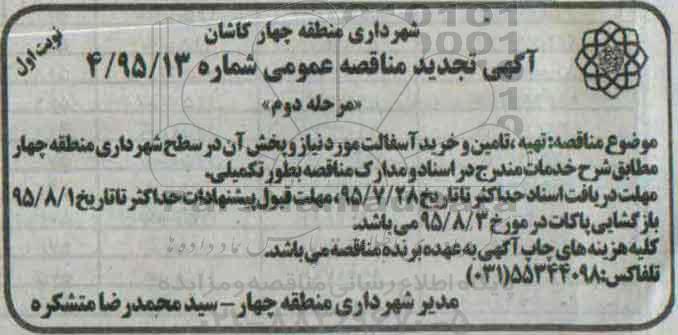 شهرداری منطقه چهار کاشان
نوبت اول
آگهی تجدید مناقصه عمومی شماره ۴/۹۵/۱۳
«مرحله دوم»
موضوع مناقصه: تهیه، تامین و خرید آسفالت مورد نیاز و پخش آن در سطح شهرداری منطقه چهار
مطابق شرح خدمات مندرج در اسناد و مدارک مناقصه بطور تکمیلی.
مهلت دریافت اسناد حداکثر تا تاریخ ۹۵/۷/۲۸، مهلت قبول پیشنهادات حداکثر تا تاریخ ۹۵/۸/۱
بازگشایی پاکات در مورخ ۹۵/۸/۳ می باشد.
کلیه هزینه های چاپ آگهی به عهده برنده مناقصه می باشد.
تلفاکس: ۵۵۳۴۴۰۹۸(۰۳۱)
مدیر شهرداری منطقه چهار – سید محمدرضا متشکره